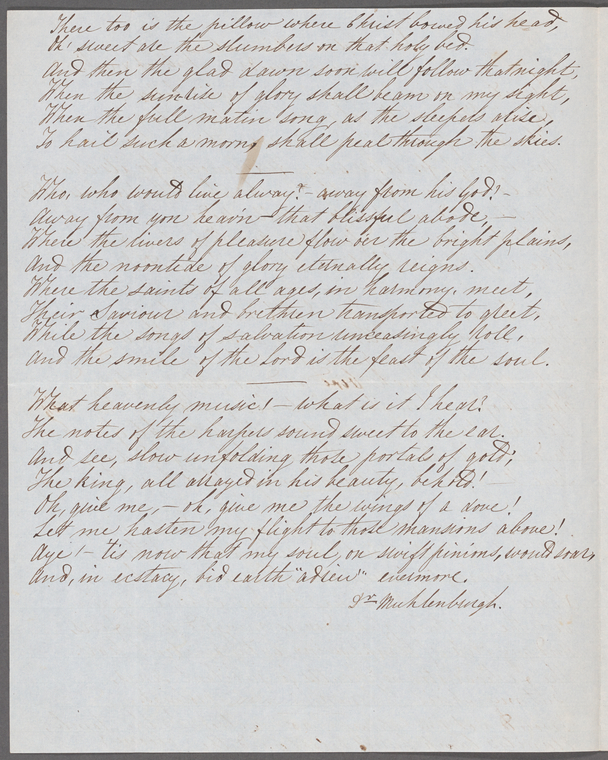 There too is the pillow where Christ bowed his head,
Oh! sweet are the slumbers on that holy bed.
And then the glad dawn soon will follow that night,
When the sunrise of glory shall beam on my sight,
When the full matin song, as the sleepers arise,
To hail such a morn, shall peal through the skies.
Who, who would live alway? - away from his God! -
Away from yon heavn - that blissful abode, -
Where the rivers of pleasure flow oer the bright plains,
And the noontide of glory eternally reigns.
Where the saints of all ages, in harmony, meet,
Their Saviour and brethren transported to greet,
While the songs of salvation unceasingly roll,
And the smile of the Lord is the feast of the soul.
What heavenly music! - what is it I hear?
The notes of the harpers sound sweet to the ear.
And see, slow unfolding those portals of gold;
The King, all arrayed in his beauty, behold! -
Oh, give me, - oh, give me the wings of a dove!
Let me hasten my flight to those mansions above!
Aye! - 'tis now that my soul, on swift pinions, would soar,
And, in ecstacy, bid earth "adieu" evermore.
Dr Muhlenburgh.